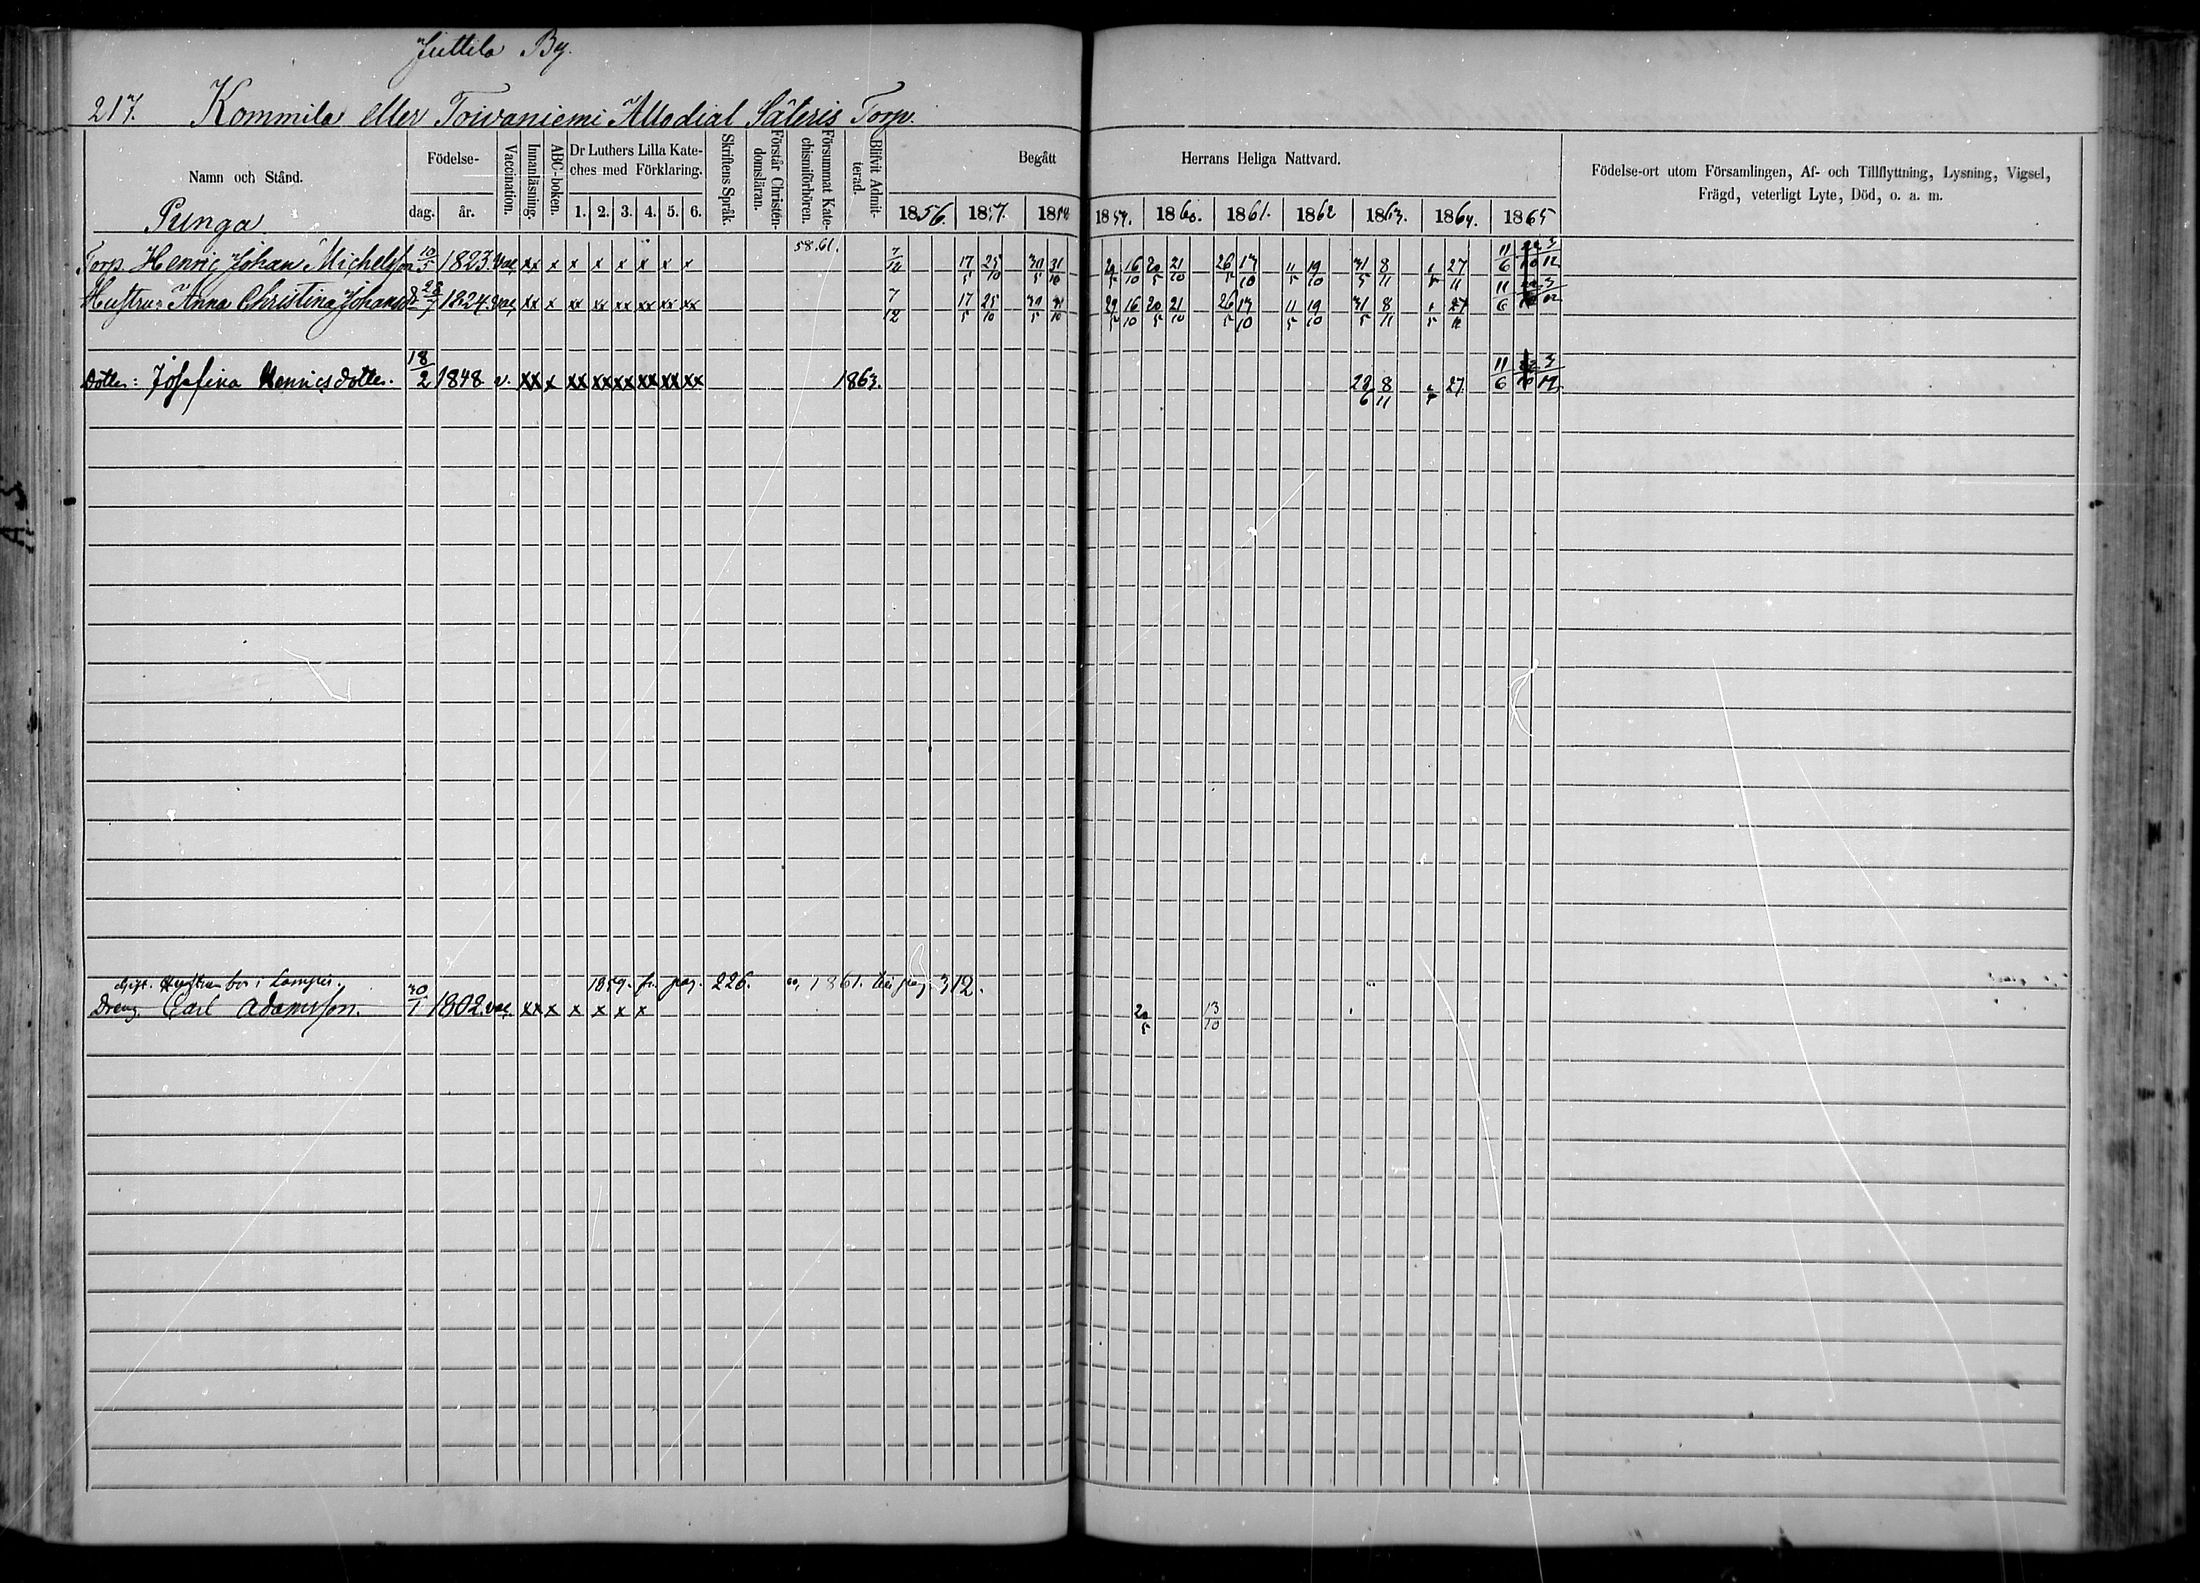 Juttila By.
217. Kommila eller Toivaniemi Allodial Säteris Torp.
Namn och Stånd. Födelse- dag. år. Vaccination. Innanläsning. ABC-boken. Dr Luthers Lilla Kate-ches med Förklaring. 1. 2. 3. 4. 5. 6. Skriftens Språk. Förstår Christen-domsläran. Försummat Kate-chismiförhören. Blifvit Admit-terad. Begått Herrans Heliga Nattvard. Födelse-ort utom Församlingen, Af- och Tillflyttning, Lysning, Vigsel,
Frägd, veterligt Lyte, Död, o. a. m.
1856. 1857. 1858 1859. 1860. 1861. 1862 1863. 1864. 1865
Punga
58.61.
Torp. Henric Johan Michelsson 10/5 1823. vac. xx x x x x x x x 7/12 17/5 25/10 30/5 31/10 29/5 16/10 20/5 21/10 26/5 13/10 11/5 19/10 31/5 8/11 27/11 11/6 22/10 3/12
Hustru: Anna Christina Johansd 28/7 1824. vac. xx x xx xx xx xx xx xx 7/12 17/5 25/10 30/5 31/10 29/5 16/10 20/5 21/10 26/5 13/10 11/5 19/10 31/5 8/11 27 11/6 3/12
Dotter: Josefina Henricsdotter. 18/2 1848 v. xx x xx xx xx xx xx xx 1863. 28/6 8/11 27 11/6 3/12
Gift. Hustrun bor i Lampis. 1859. fr. pag. 226. 1861. till pag. 312.
Dreng. Carl Adamsson. 30/1 1802. vac. xx x x x x x 20/5 13/10